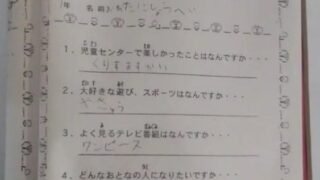 年 名前 たにしょうへい
1. 児童センターで楽しかったことはなんですか・・・
くりすますかい
2. 大好きな遊び、スポーツはなんですか・・・
やきゅう
3. よく見るテレビ番組はなんですか・・・
ワンピース
4. どんなおとなの人になりたいですか・・・